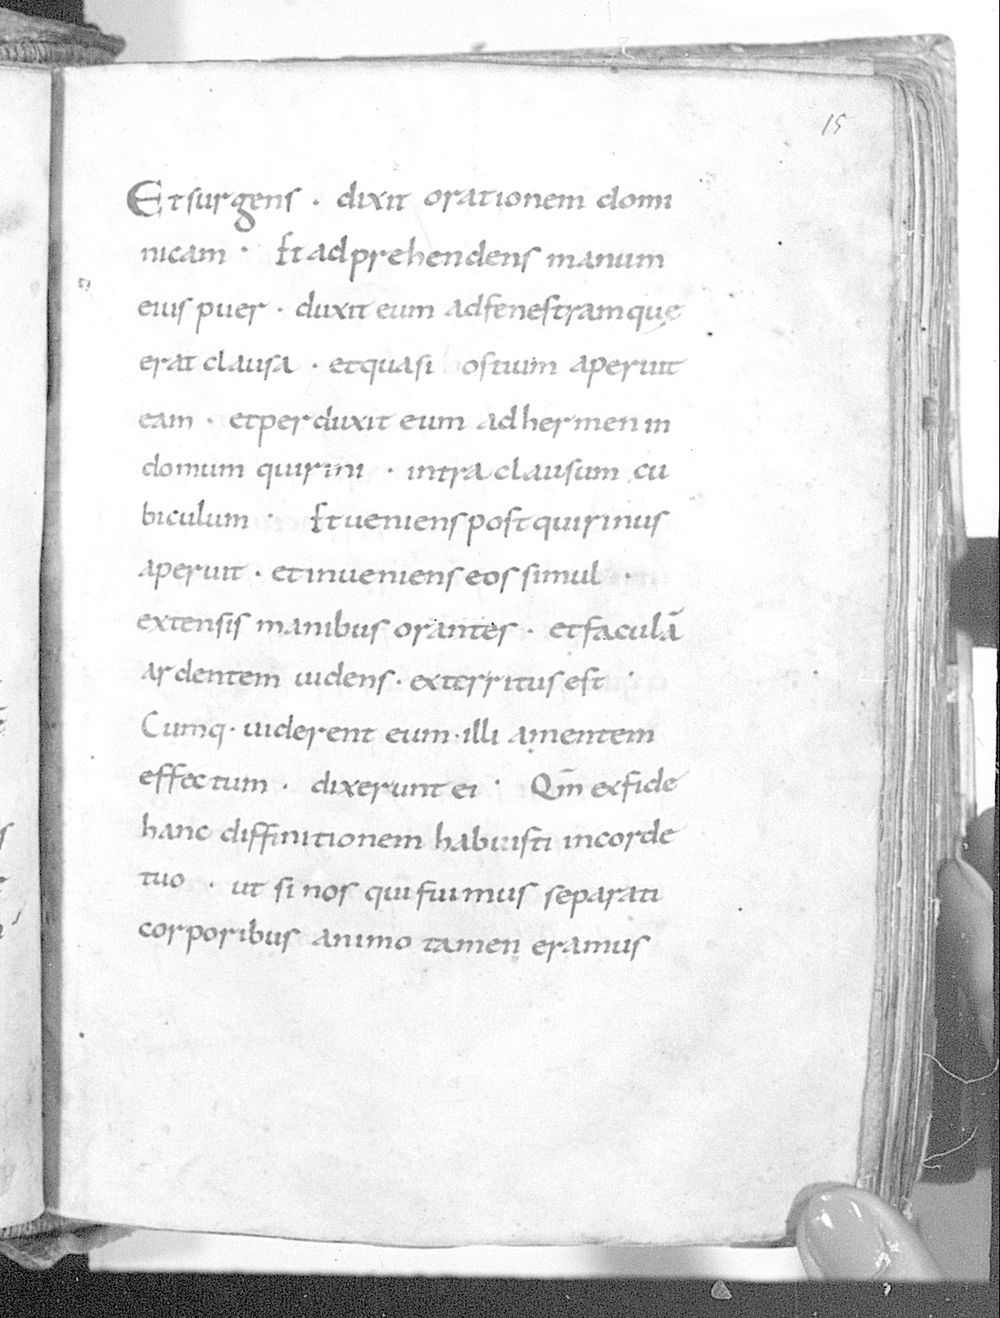 15
Et surgens · dixit orationem domi
nicam · Et adprehendens manum
eius puer · duxit eum ad fenestram quę
erat clausa · et quasi ostium aperuit
eam · et perduxit eum ad hermen in
domum quirini · intra clausum cu
biculum · Et ueniens post quirinus
aperuit · et inueniens eos simul ·
extensis manibus orantes · et faculā
ardentem uidens · exterritus est ·
Cumq · uiderent eum · illi amentem
effectum · dixerunt ei · Qm̄ ex fide
hanc diffinitionem habuisti in corde
tuo · ut si nos qui fuimus separati
corporibus animo tamen eramus